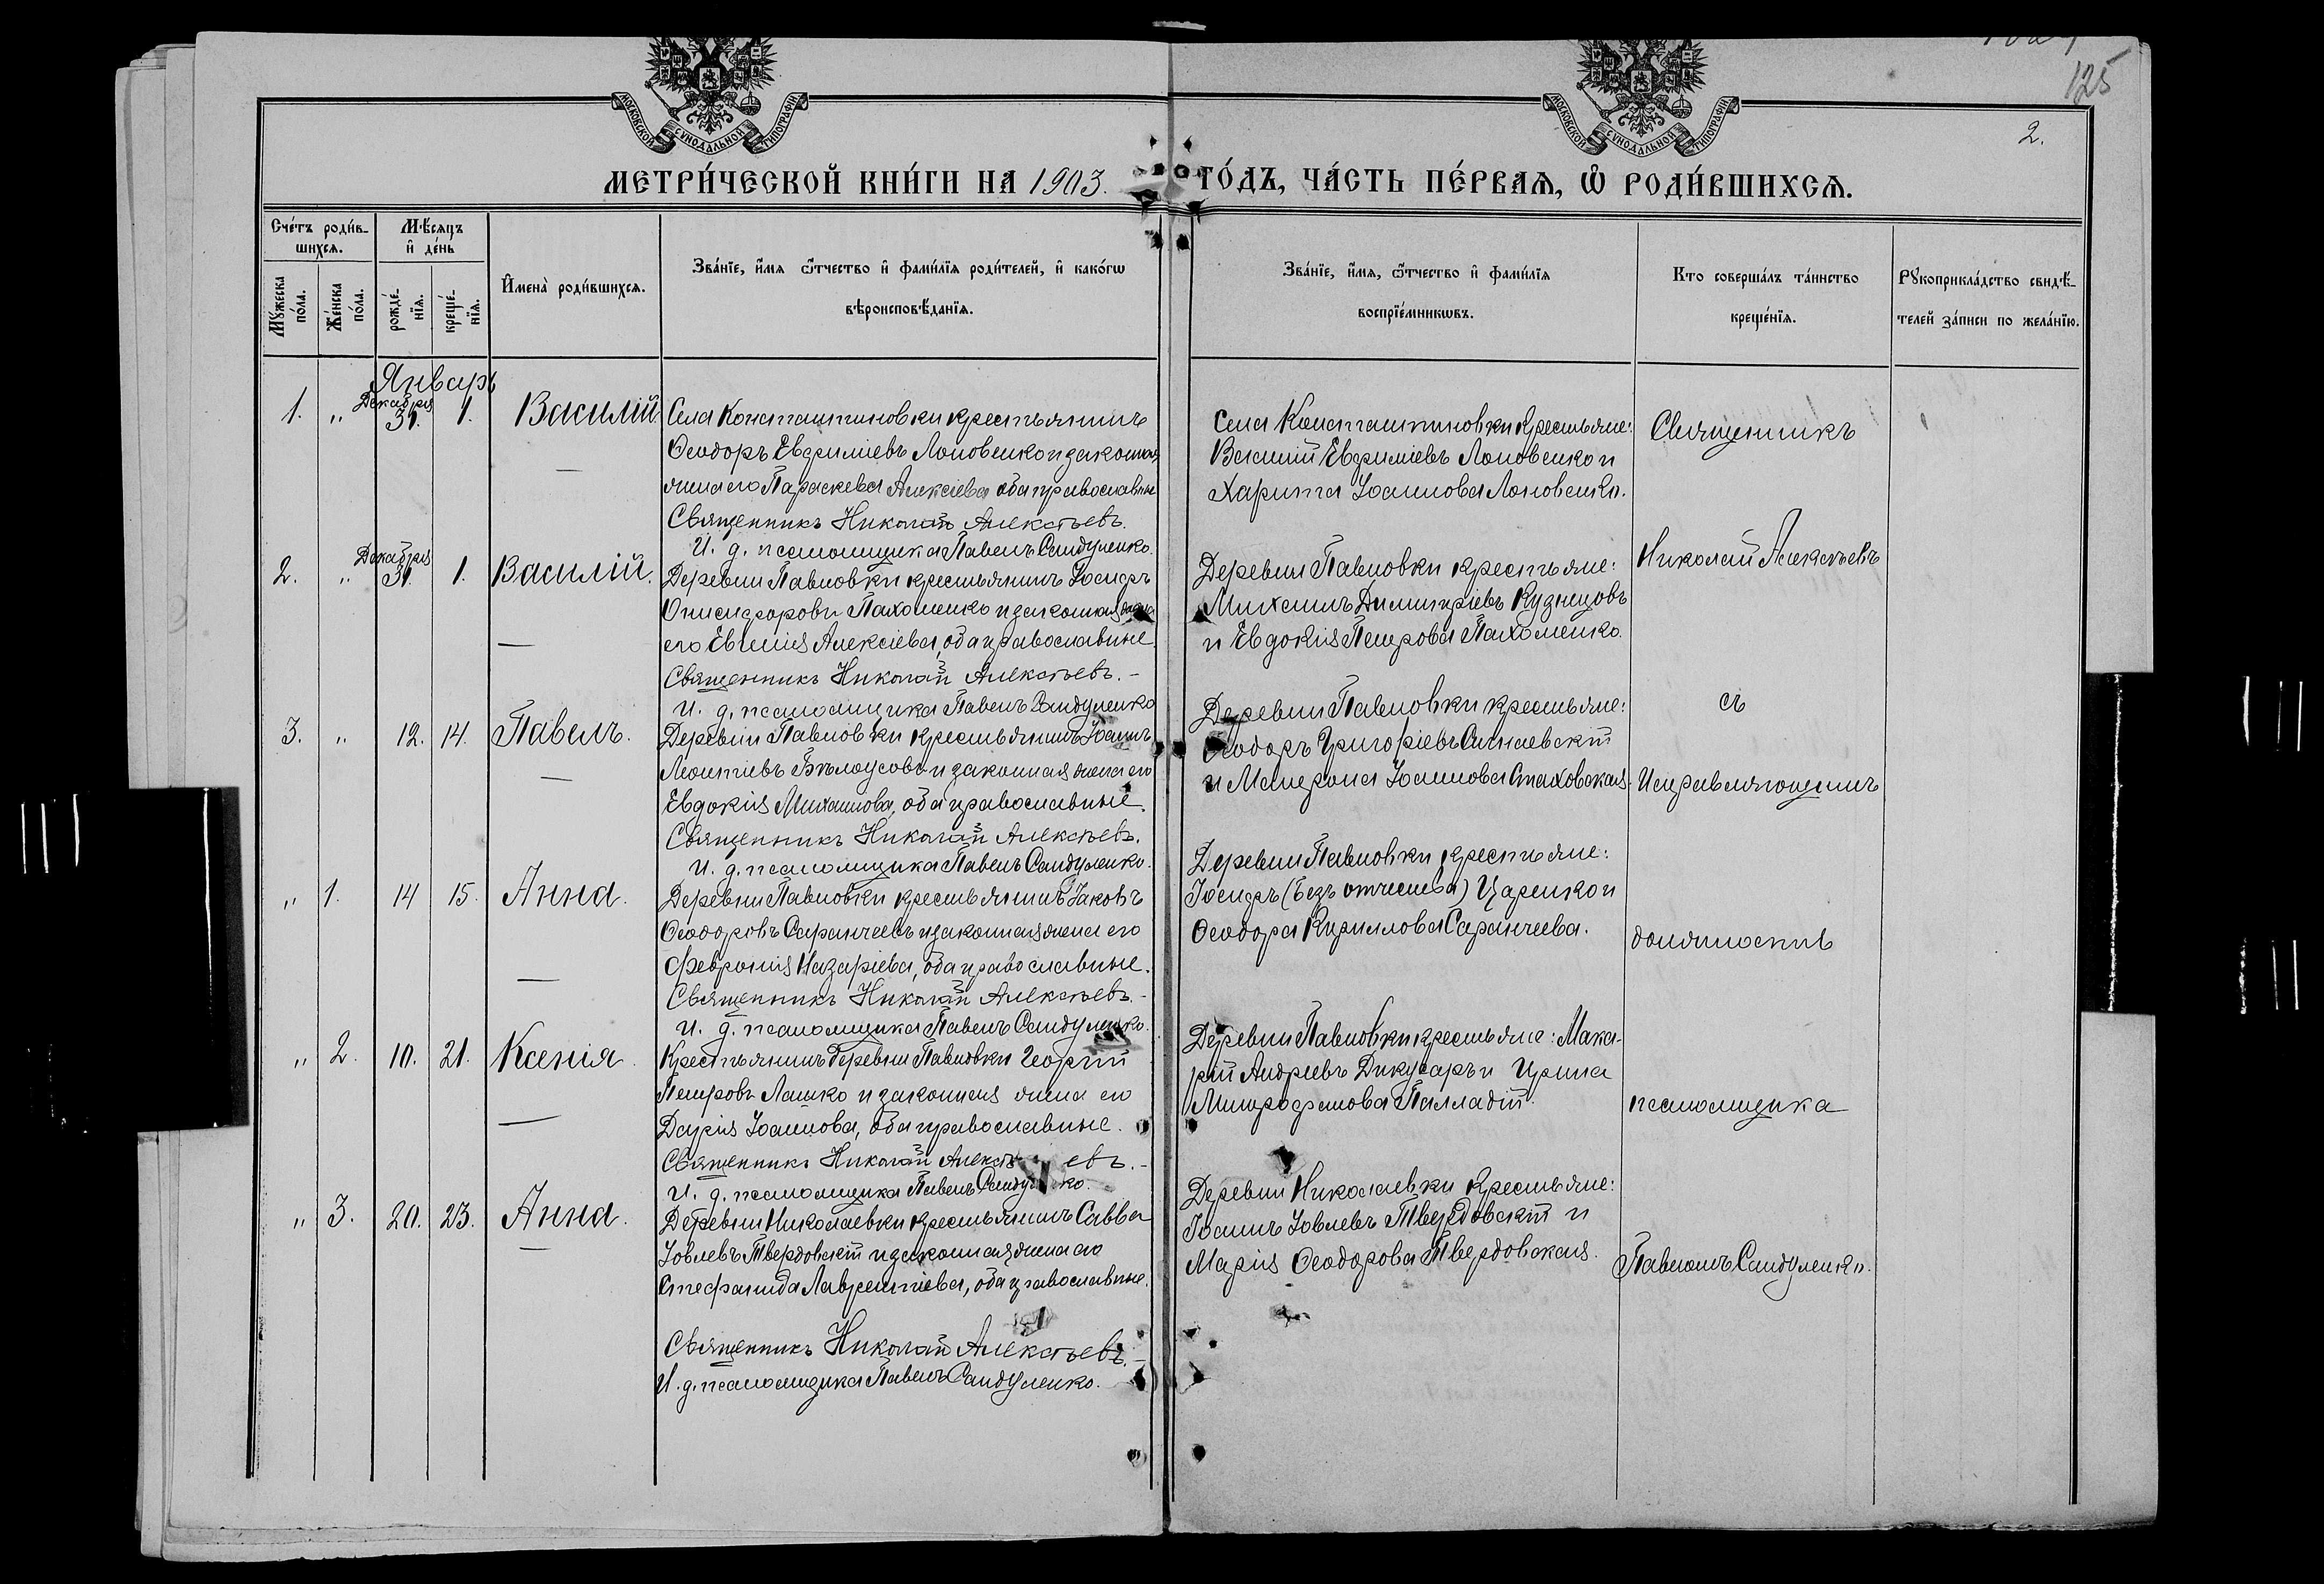 125
2.
МОСКОВСКОЙ СУНОДАЛЬНОЙ ТИПОГРАФІИ
МОСКОВСКОЙ СУНОДАЛЬНОЙ ТИПОГРАФІИ
МЕТРИ́ЧЕСКОЙ КНИ́ГИ НА 1903. ГО́ДЪ, ЧА́СТЬ ПЕ́РВАѦ, Ѡ҆ РОДИ́ВШИХСѦ.
Сче́тъ роди́в-
шихсѧ.
Мꙋжеска
по́ла.
Же́нска
по́ла.
Мѣ́сѧцъ
и҆ де́нь
рожде́-
нїѧ.
креще́-
нїѧ.
И҆мена̀ роди́вшихсѧ.
Зва́нїе, и҆́мѧ ѻ҆́тчество и҆ фами́лїѧ роди́телей, и҆ како́гѡ
вѣроисповѣ́данїѧ.
Зва́нїе, и҆́мѧ, ѻ҆́тчество и҆ фами́лїѧ
воспрїе́мникѡвъ.
Кто соверша́лъ та́инство
креще́нїѧ.
Рꙋкоприкла́дство свидѣ́-
телей за́писи по жела́нїю.
Январь
1. „ Декабря 31. 1. Василій.
Села Константиновки крестьянинъ
Ѳеодоръ Евфиміевъ Лоповенко и законная
жена его Параскева Алексіева оба православные
Священникъ Николай Алексѣевъ.
И. д. псаломщика Павелъ Сандуленко.
Села Константиновки крестьяне:
Василій Евфиміевъ Лоповенко и
Харита Іоаннова Лоповенко.
Священникъ
2. „ Декабря 31. 1. Василій.
Деревни Павловки крестьянинъ Іосифъ
Онисифоровъ Пахоменко и законная жена
его Евгенія Алексіева, оба православные.
Священникъ Николай Алексѣевъ.-
И. д. псаломщика Павелъ Сандуленко
Деревни Павловки крестьяне:
Михаилъ Димитріевъ Кузнецовъ
и Евдокія Петрова Пахоменко.
Николай Алексѣевъ
3. „ 12. 14. Павелъ.
Деревни Павловки крестьянинъ Іоаннъ
Леонтіевъ Бѣлоусовъ и законная жена его
Евдокія Михаилова, оба православные.
Священникъ Николай Алексѣевъ.
И. д. псаломщика Павелъ Сандуленко.
Деревни Павловки крестьяне:
Ѳеодоръ Григоріевъ
и Матрона Іоаннова Стаховская.
съ
Исправляющимъ
„ 1. 14 15. Анна.
Деревни Павловки крестьянинъ Іаковъ
Ѳеодоровъ Саранчевъ и законная жена его
Февронія Назаріева, оба православные.
Священникъ Николай Алексѣевъ.-
И. д. псаломщика Павелъ Сандуленко.
Деревни Павловки крестьяне:
Іосифъ (безъ отчества) Царенко и
Ѳеодора Кириллова Саранчева.
должность
„ 2. 10. 21. Ксенія.
Крестьянинъ деревни Павловки Георгій
Петровъ Лашко и законная жена его
Дарія Іоаннова, оба православные.
Священникъ Николай Алексѣевъ.-
И. д. псаломщика Павелъ Сандуленко.
Деревни Павловки крестьяне: Мака-
рій Андреевъ Дикусаръ и Ирина
Митрофанова Палладій.
псаломщика
„ 3. 20. 23. Анна.
Деревни Николаевки крестьянинъ Савва
Іовлевъ Твердовскій и законная жена его
Стефанида Лаврентіева, оба православные.
Священникъ Николай Алексѣевъ.-
И. д. псаломщика Павелъ Сандуленко.
Деревни Николаевки крестьяне:
Іоаннъ Іовлевъ Твердовскій и
Марія Ѳеодорова Твердовская.
Павломъ Сандуленко.